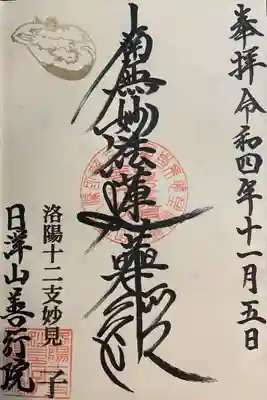 奉拝 令和四年十一月五日
南無妙法蓮華経
洛陽十二支妙見 子
日澤山善行院